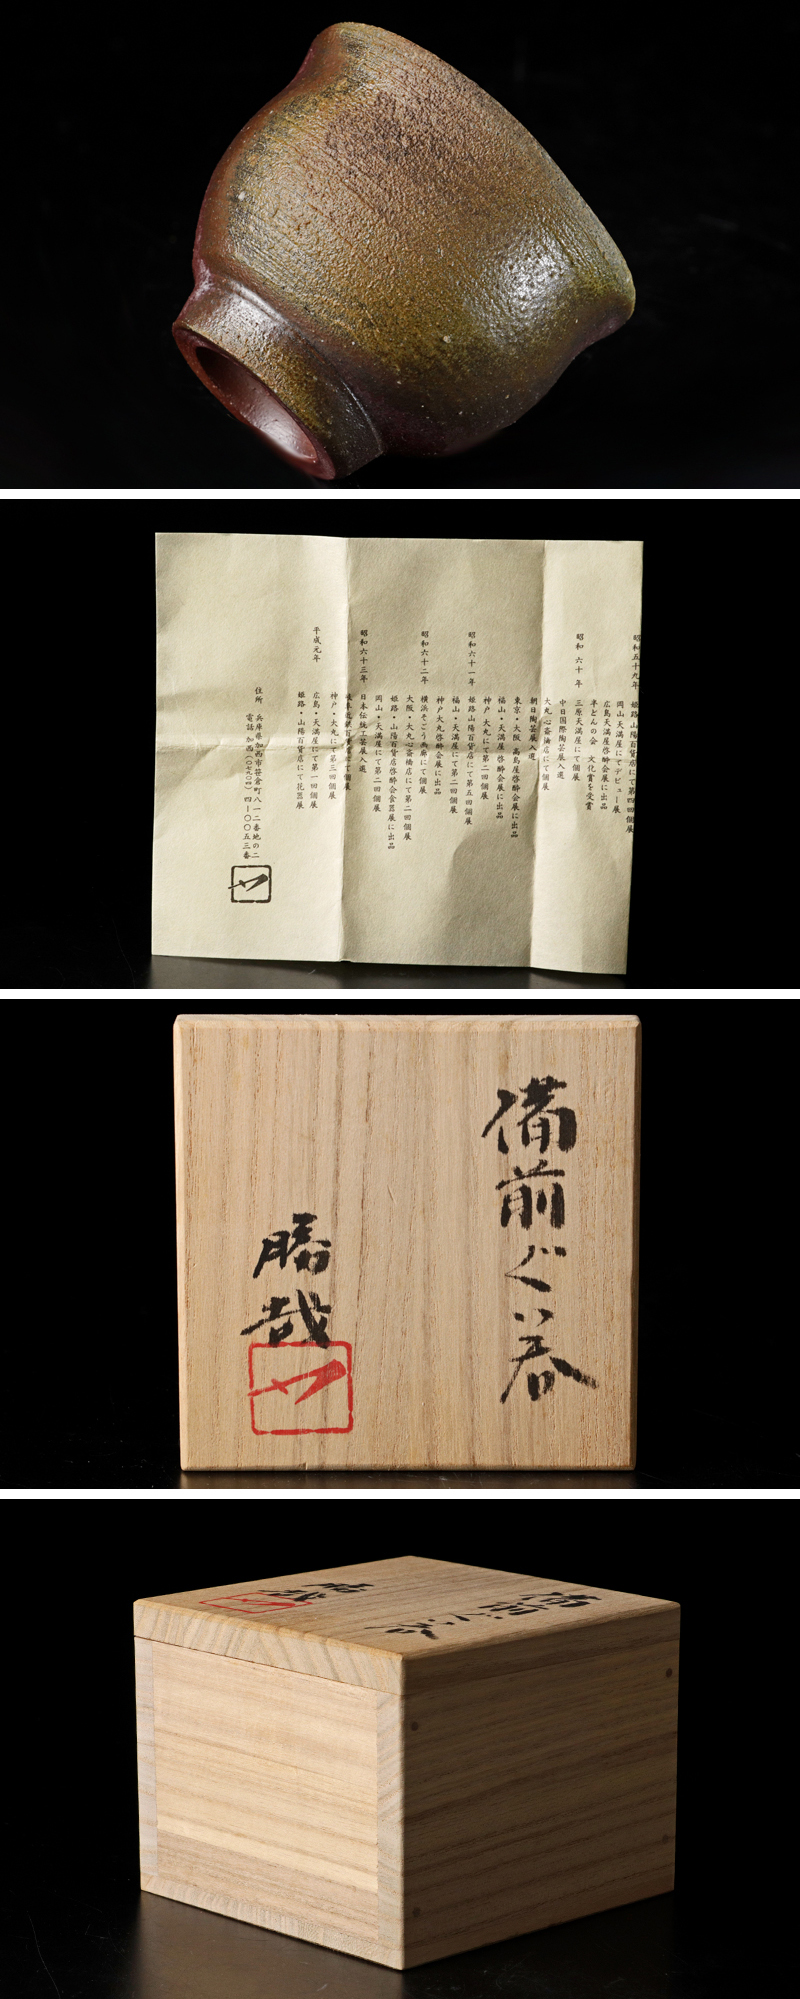 昭和五十九年 姫路・山陽百貨店にて第四回個展
岡山天満屋にてデビュー展
広島天満屋啓酔会展に出品
半どんの会 文化賞を受賞
昭和六十年 三原天満屋にて個展
中日国際陶芸展入選
大丸心斎橋店にて個展
朝日陶芸展入選
東京・大阪 高島屋啓酔会展に出品
福山・天満屋啓酔会展に出品
神戸・大丸にて第二回個展
昭和六十一年 姫路・山陽百貨店にて第五回個展
福山・天満屋にて第二回個展
神戸大丸啓酔会展に出品
昭和六十二年 横浜そごう画廊にて個展
大阪・大丸心斎橋店にて第二回個展
姫路・山陽百貨店啓酔会食器展に出品
岡山・天満屋にて第二回個展
昭和六十三年 日本伝統工芸展入選
百貨店にて個展
神戸・大丸にて第三回個展
平成元年 広島・天満屋にて第一回個展
姫路・山陽百貨店にて花器展
住所 兵庫県加西市笹倉町八一二番地の二
電話 加西(〇七九〇四)四-〇〇五三番
備前ぐい呑
勝哉
備前ぐい呑
勝哉